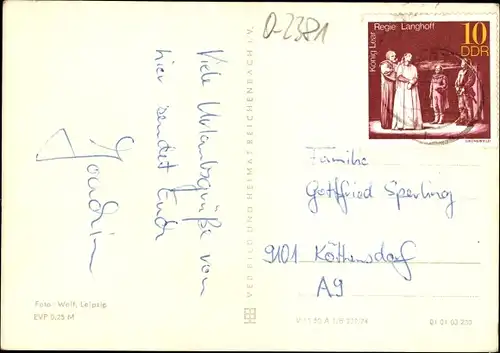 0-2381
Viele Urlaubsgrüße von
hier sendet Euch
Joachim
Foto: Wolf, Leipzig
EVP 0,25 M
VEB BILD UND HEIMAT REICHENBACH I. V.
König Lear Regie: Langhoff
10
DDR
Familie
Gottfried Sperling
9101 Köthensdorf
A9
01 01 02 250